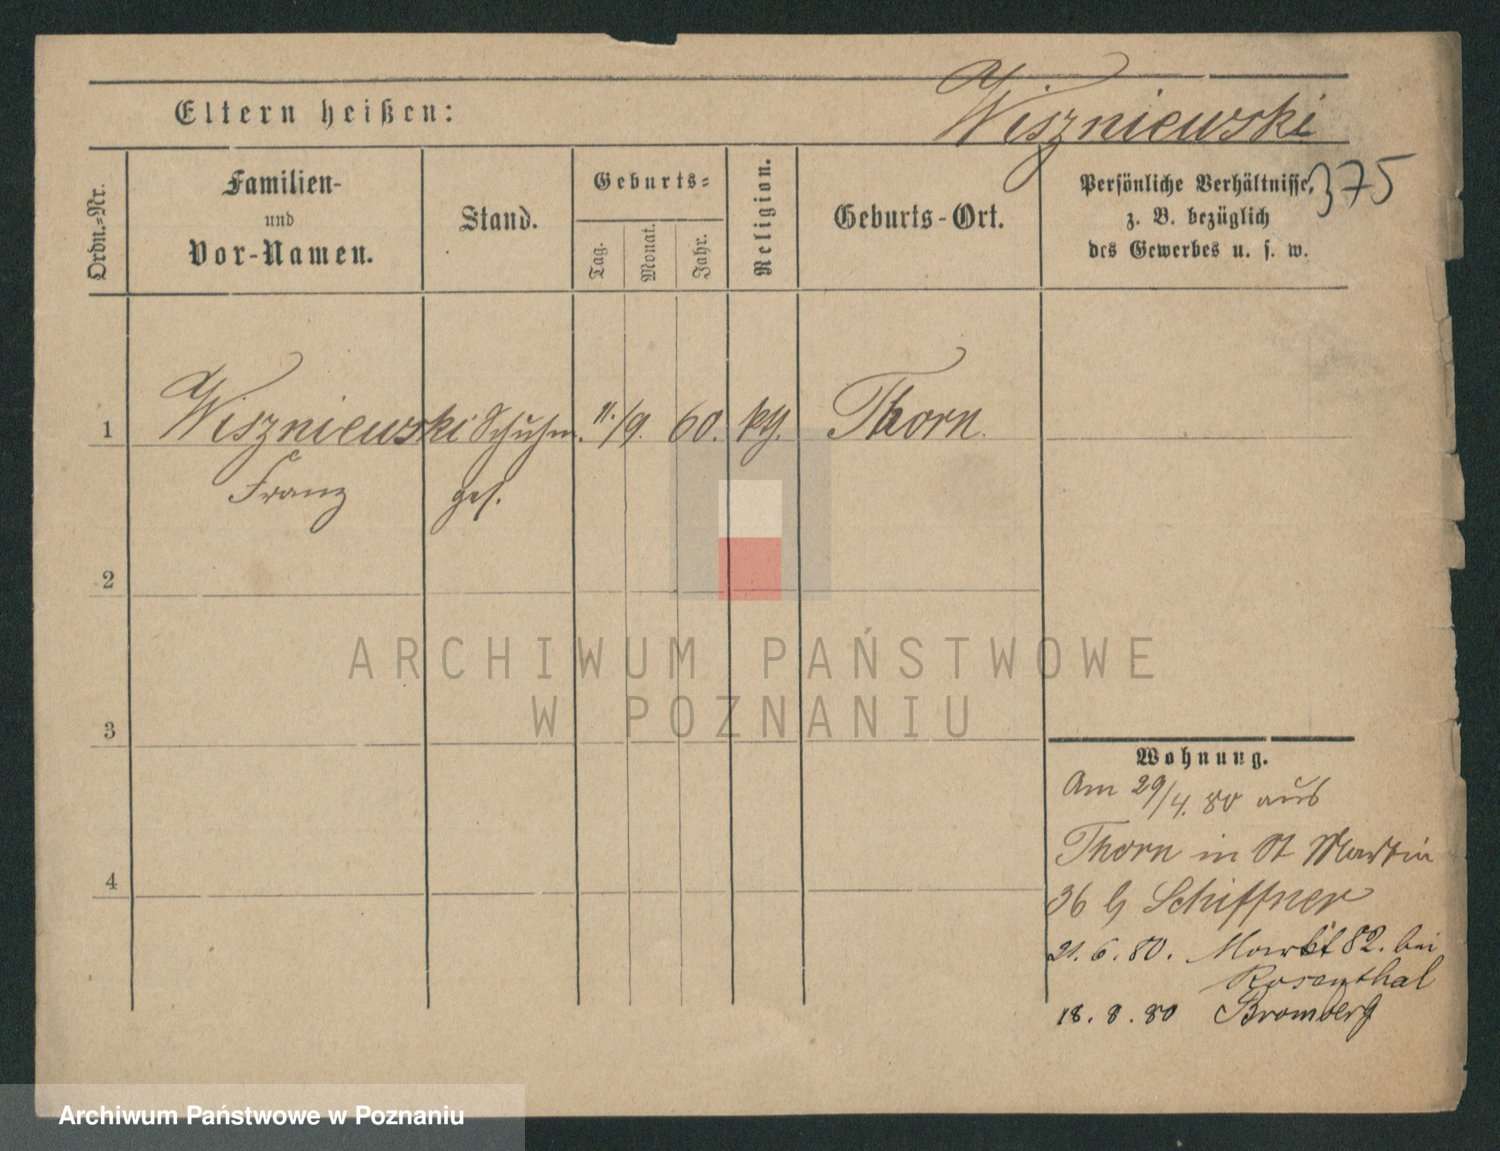 Eltern heißen:
Wiszniewski
375
Ordn.=Nr.
Familien-
und
Vor-Namen.
Stand.
Geburts=
Tag.
Monat.
Jahr.
Religion.
Geburts-Ort.
Persönliche Verhältnisse,
z. B. bezüglich
des Gewerbes u. s. w.
1 Wiszniewski Schuhm. 11./9. 60. kth. Thorn.
Franz ges.
2
3
4
Wohnung.
Am 29/4. 80 aus
Thorn in St Martin
36 b Schiffner
21. 6. 80. Markt 82. bei
Rosenthal
18. 8. 80 Bromberg
ARCHIWUM PAŃSTWOWE
W POZNANIU
Archiwum Państwowe w Poznaniu